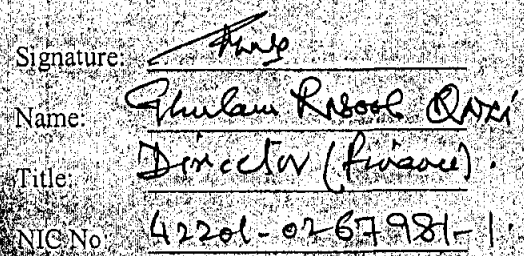 Signature:
Name: Ghulam Rasool Qazi
Title: Director (Finance).
NIC No: 42201-0267981-1.